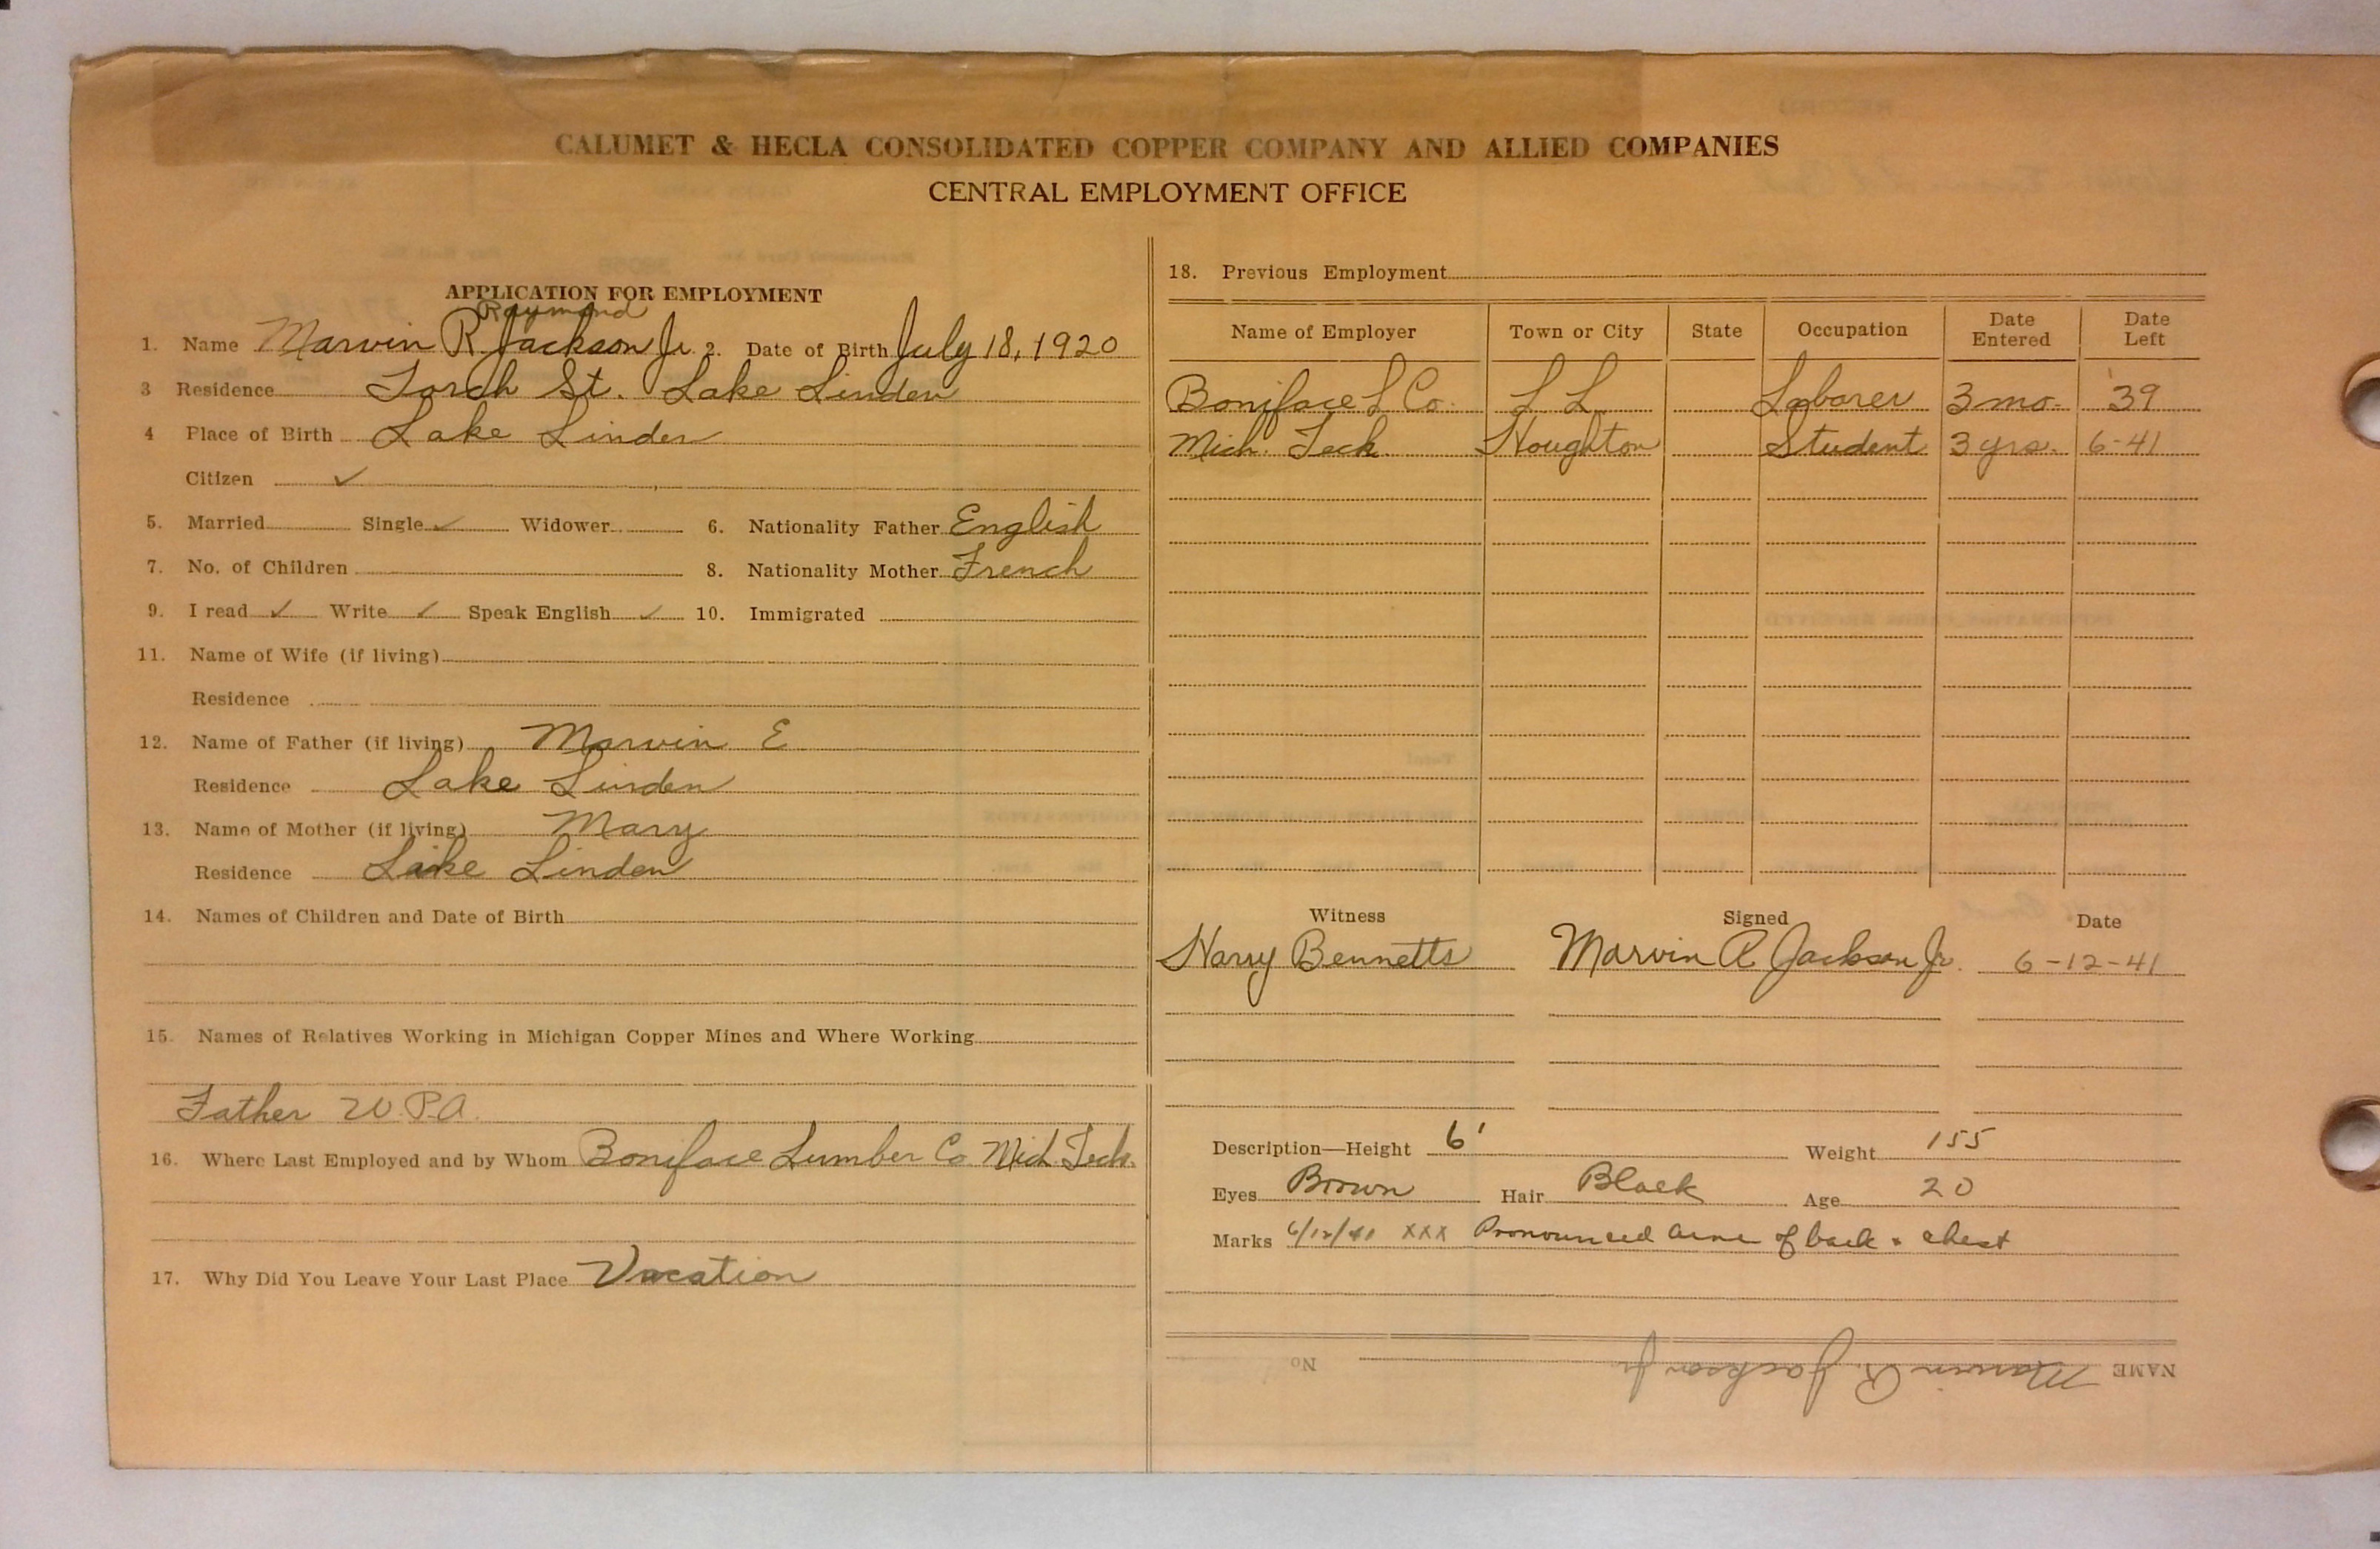 CALUMET & HECLA CONSOLIDATED COPPER COMPANY AND ALLIED COMPANIES
CENTRAL EMPLOYMENT OFFICE
APPLICATION FOR EMPLOYMENT
Raymond
1. Name Marvin R. Jackson Jr. 2. Date of Birth July 18, 1920
3 Residence Torch St. Lake Linden
4 Place of Birth Lake Linden
Citizen ✓
5. Married Single ✓ Widower 6. Nationality Father English
7. No. of Children 8. Nationality Mother French
9. I read ✓ Write ✓ Speak English ✓ 10. Immigrated
11. Name of Wife (if living)
Residence
12. Name of Father (if living) Marvin E
Residence Lake Linden
13. Name of Mother (if living) Mary
Residence Lake Linden
14. Names of Children and Date of Birth
15. Names of Relatives Working in Michigan Copper Mines and Where Working
Father W.P.A.
16. Where Last Employed and by Whom Boniface Lumber Co Mich Tech.
17. Why Did You Leave Your Last Place Vacation
18. Previous Employment
Name of Employer Town or City State Occupation Date Entered Date Left
Boniface L Co. L L Laborer 3 mo. '39
Mich. Tech. Houghton Student 3 yrs. 6-41
Witness Signed Date
Harry Bennetts Marvin R Jackson Jr. 6-12-41
Description—Height 6' Weight 155
Eyes Brown Hair Black Age 20
Marks 6/12/41 XXX Pronounced acne of back & chest
NAME Marvin R. Jackson Jr No